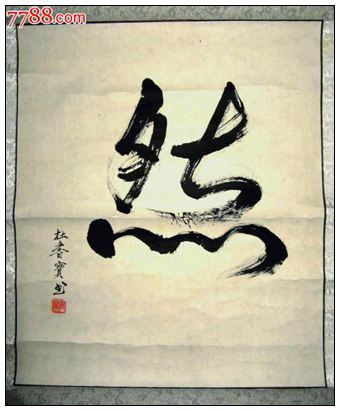 7788.com
然
杜 寶 书